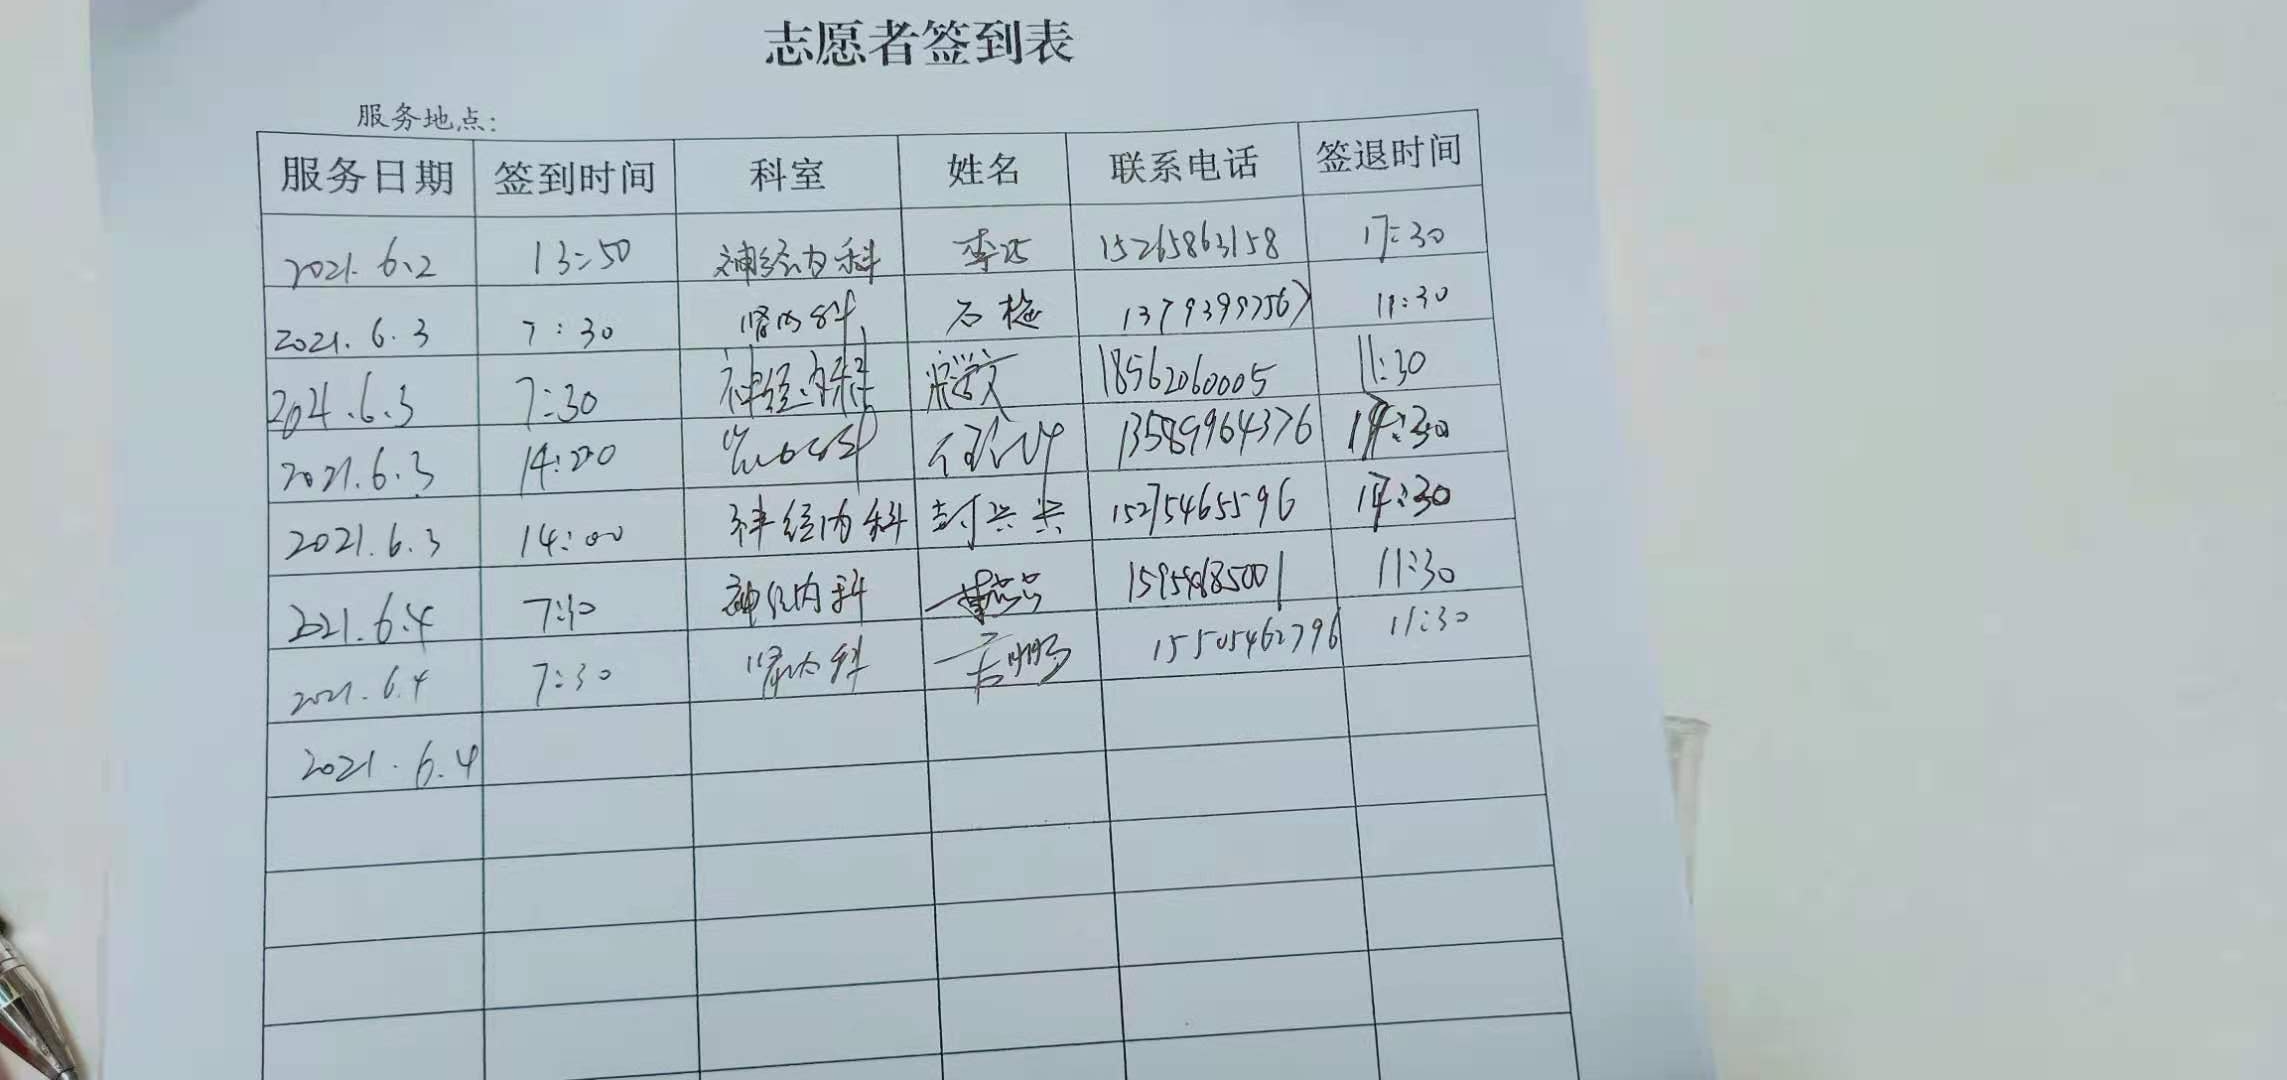 志愿者签到表
服务地点:
服务日期 签到时间 科室 姓名 联系电话 签退时间
2021.6.2 13:50 神经内科 15265863158 17:30
2021.6.3 7:30 肾内科 石梅 11:30
2021.6.3 7:30 神经内科 18562060005 11:30
2021.6.3 14:00 13589964376 17:30
2021.6.3 14:00 神经内科 15275465596 17:30
2021.6.4 7:30 神经内科 11:30
2021.6.4 7:30 肾内科 15505462796 11:30
2021.6.4